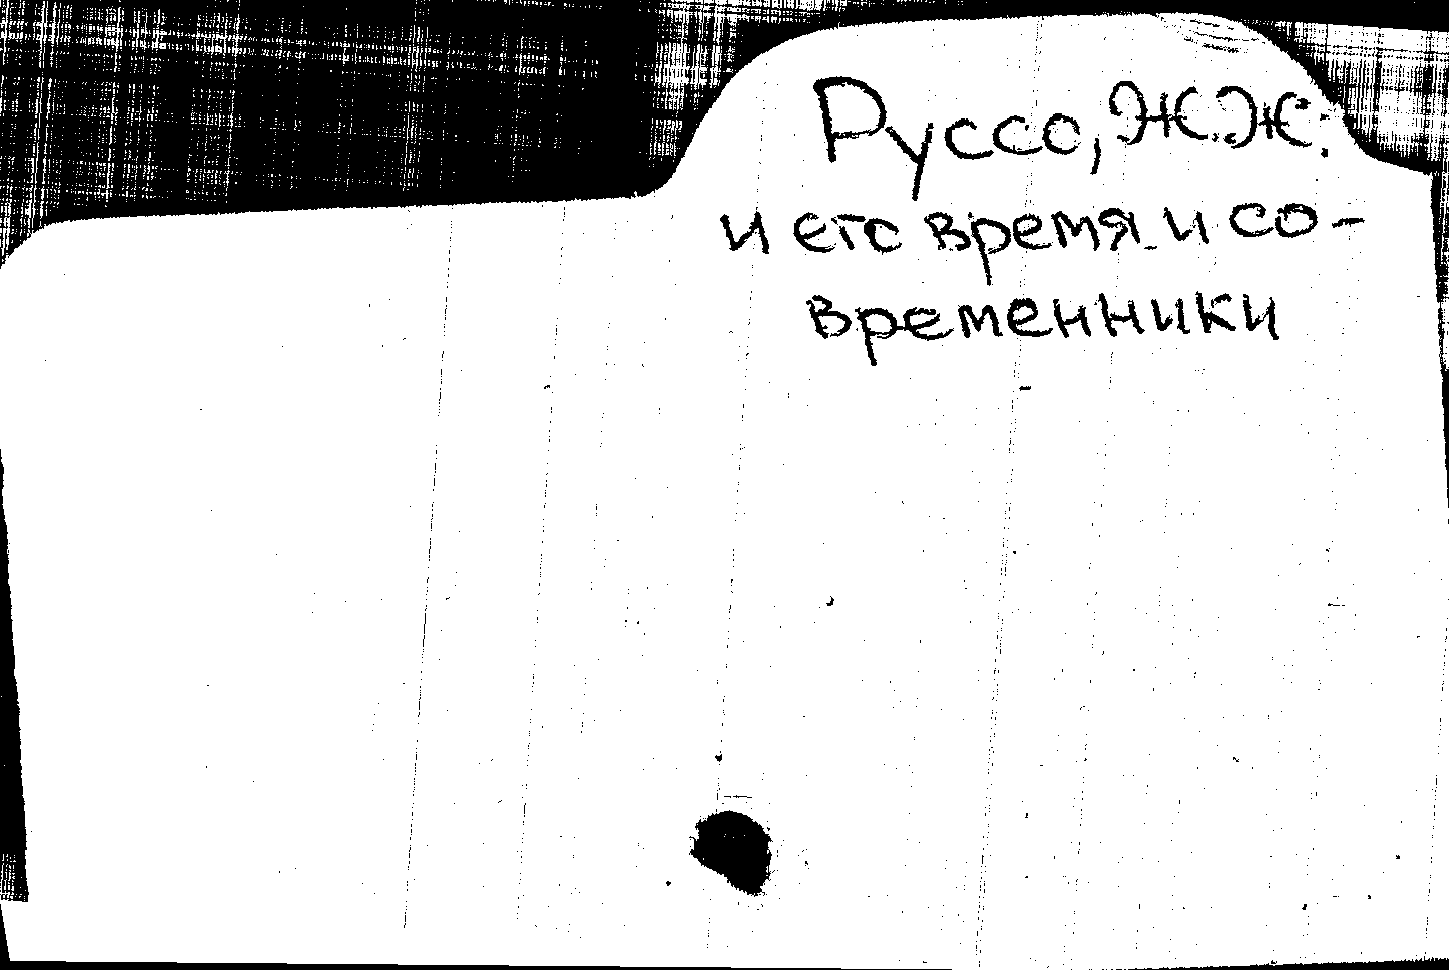 Руссо, Ж.Ж.
и его время и со-
временники